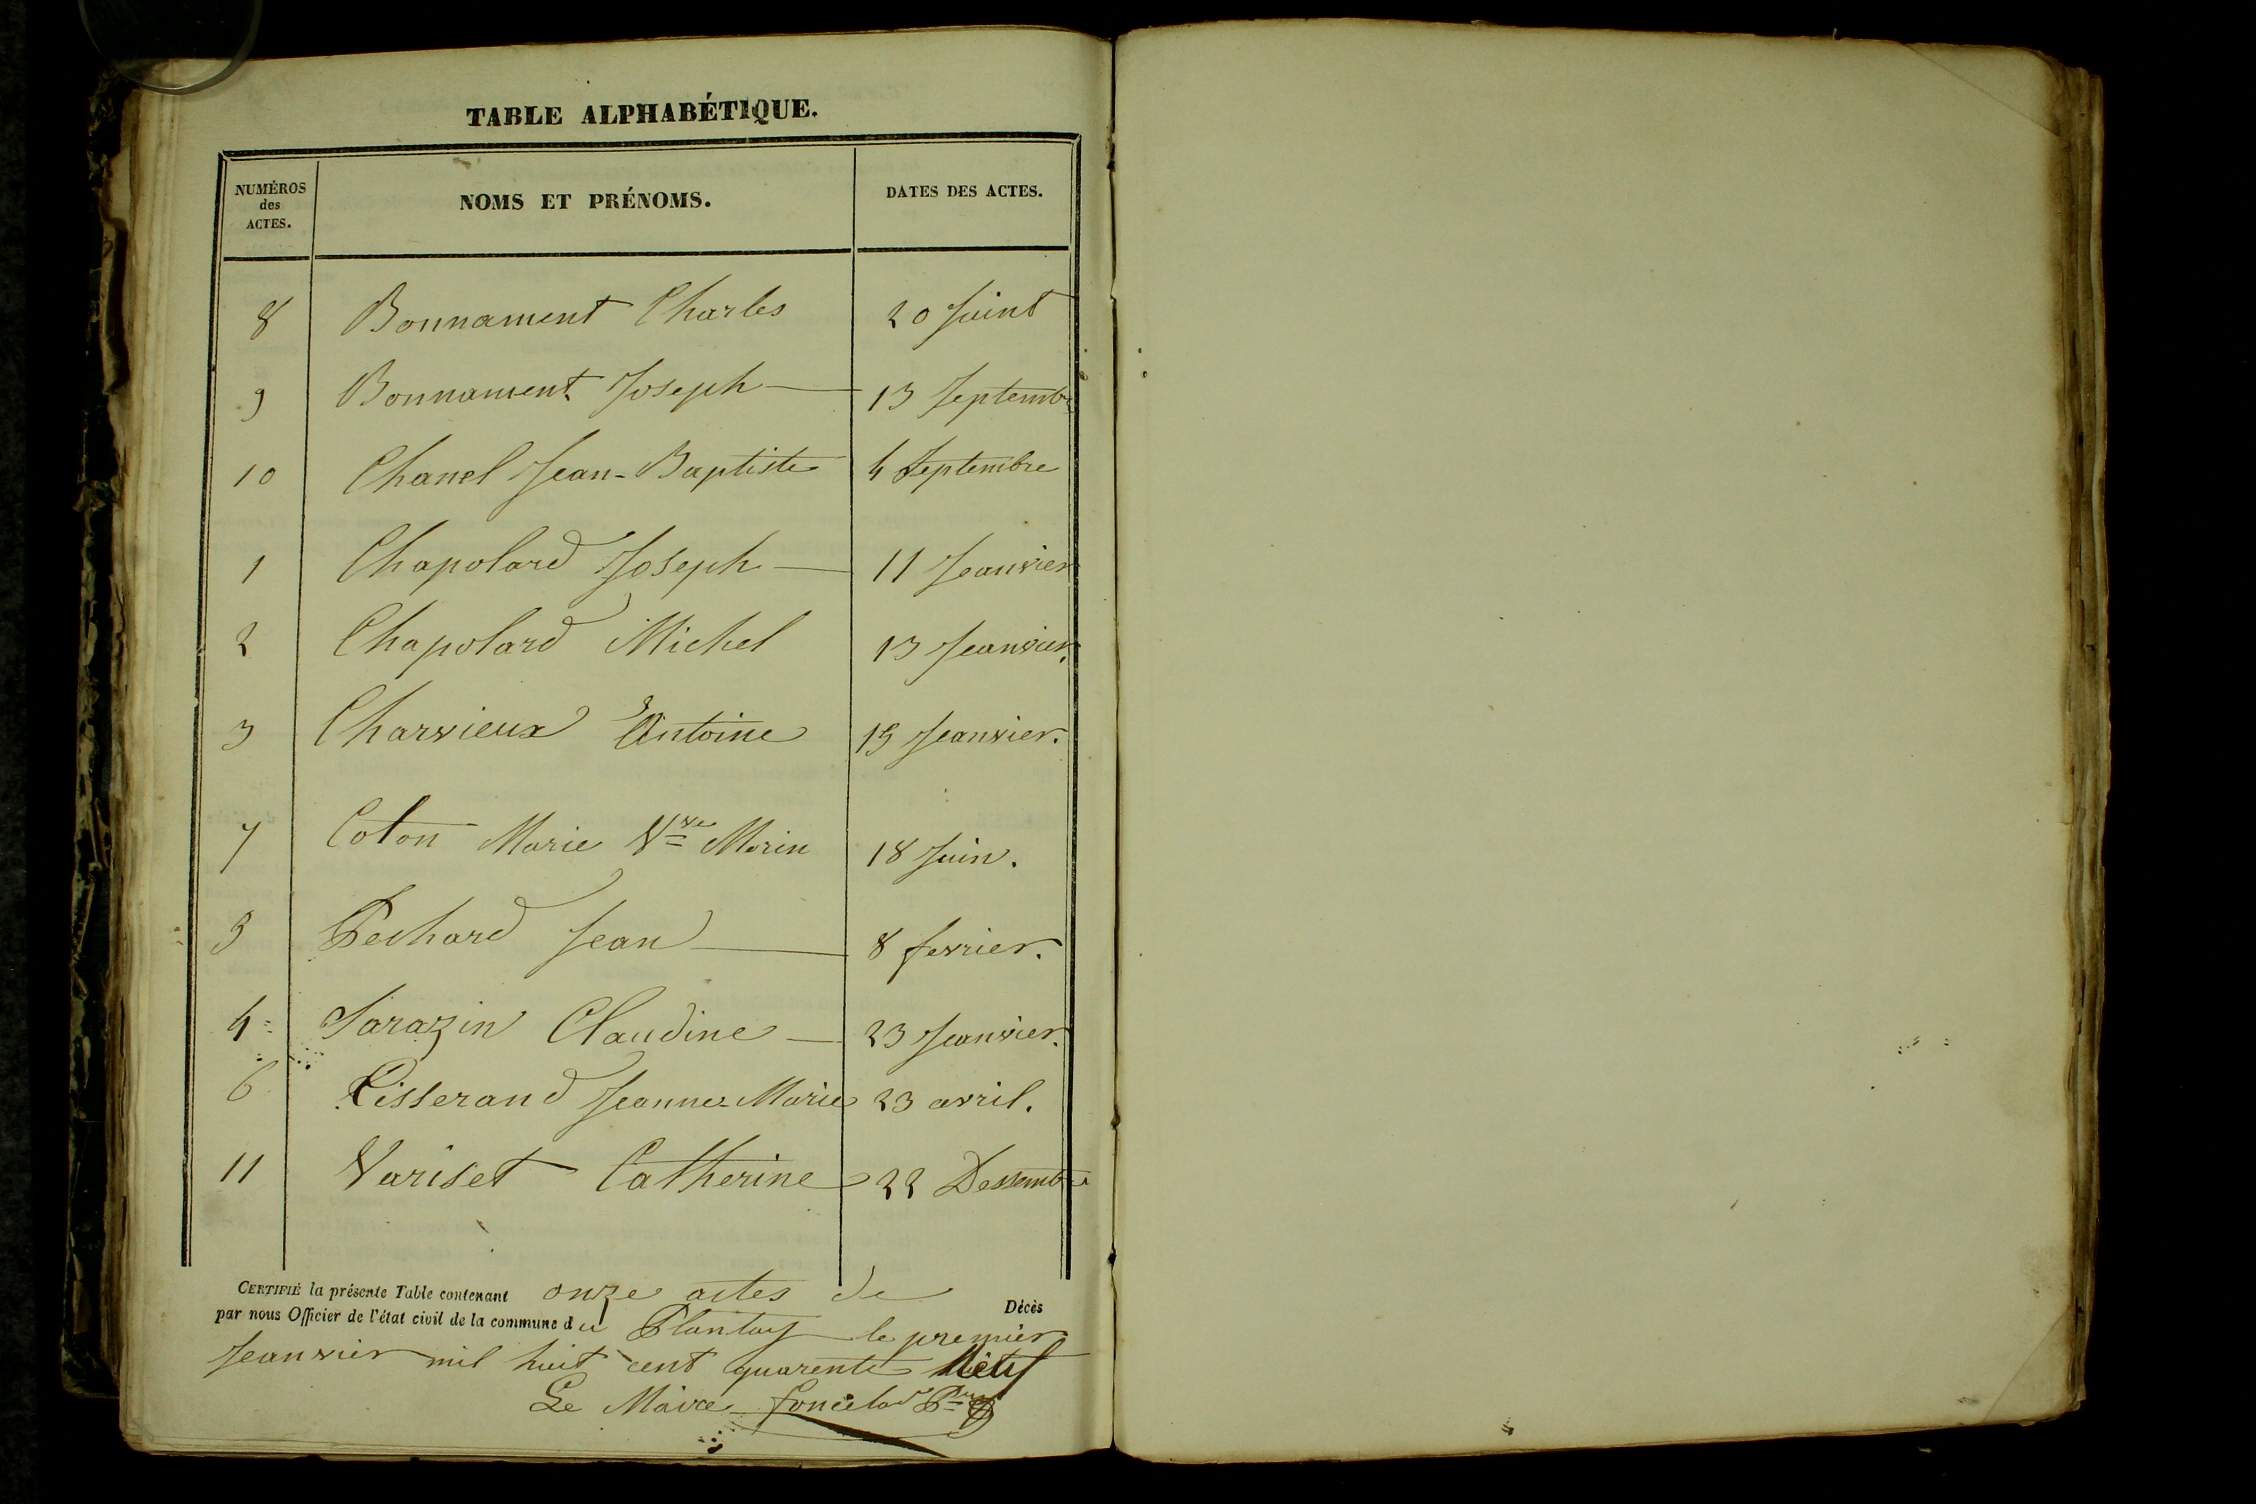 TABLE ALPHABÉTIQUE.
NUMÉROS des ACTES. NOMS ET PRÉNOMS. DATES DES ACTES.
8 Bonnament Charles 20 Juint
9 Bonnament Joseph 13 Septembre
10 Chanel Jean-Baptiste 4 Septembre
1 Chapolard Joseph 11 Jeanvier
2 Chapolard Michel 13 Jeanvier.
3 Charvieux Antoine 15 Jeanvier.
7 Coton Marie Vve Morin 18 Juin.
5 Pechard Jean 8 fevrier.
4 Sarazin Claudine 23 Jeanvier.
6 Tisserand Jeanne-Marie 23 avril.
11 Variset Catherine 22 Dessembre
CERTIFIÉ la présente Table contenant onze actes de Décès
par nous Officier de l'état civil de la commune du Plantay le premier
Jeanvier mil huit cent quarente Neuf
Le Maire